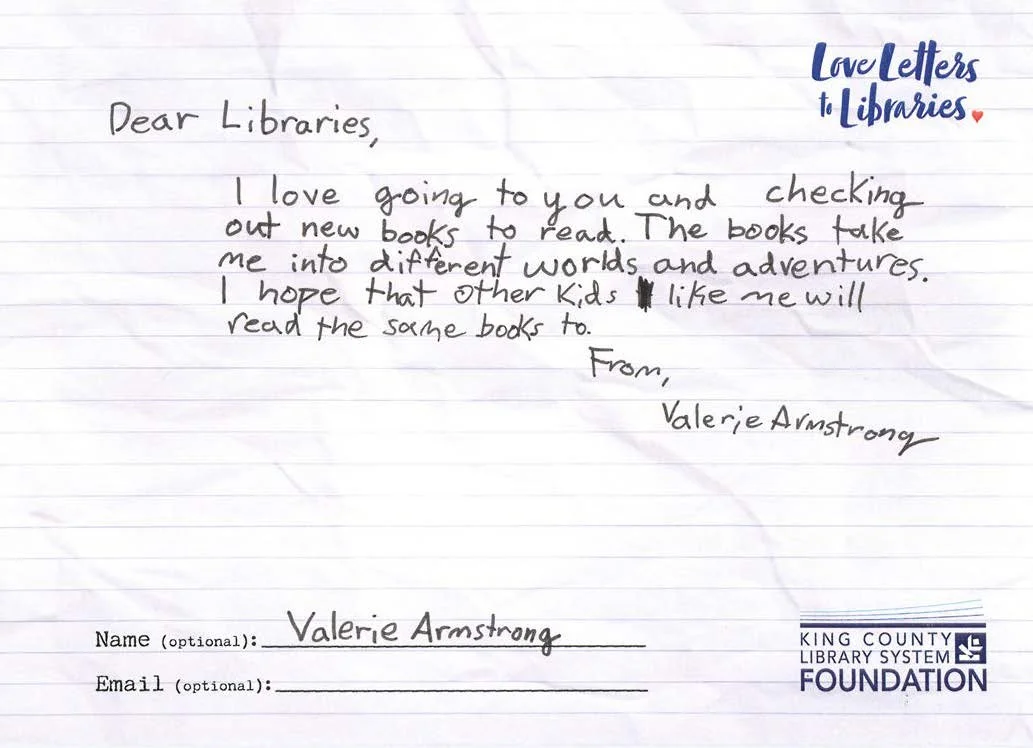 Love Letters
to Libraries
Dear Libraries,
I love going to you and checking
out new books to read. The books take
me into different worlds and adventures.
I hope that other kids like me will
read the same books to.
From,
Valerie Armstrong
Name (optional): Valerie Armstrong
Email (optional):
KING COUNTY
LIBRARY SYSTEM
FOUNDATION